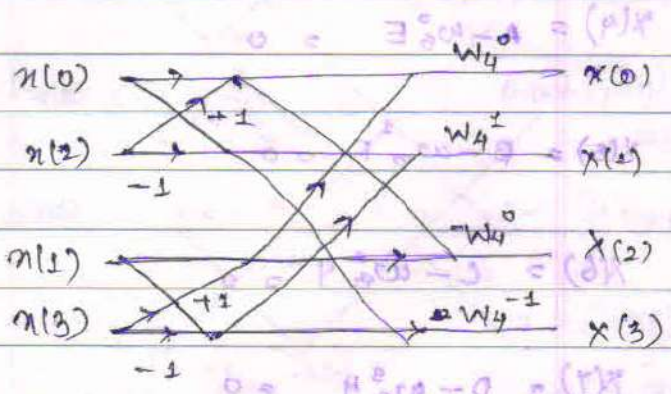 x(0) W4^0 X(0)
+1
x(2) W4^1 X(1)
-1
x(1) -W4^0 X(2)
x(3) +1 -W4^-1 X(3)
-1